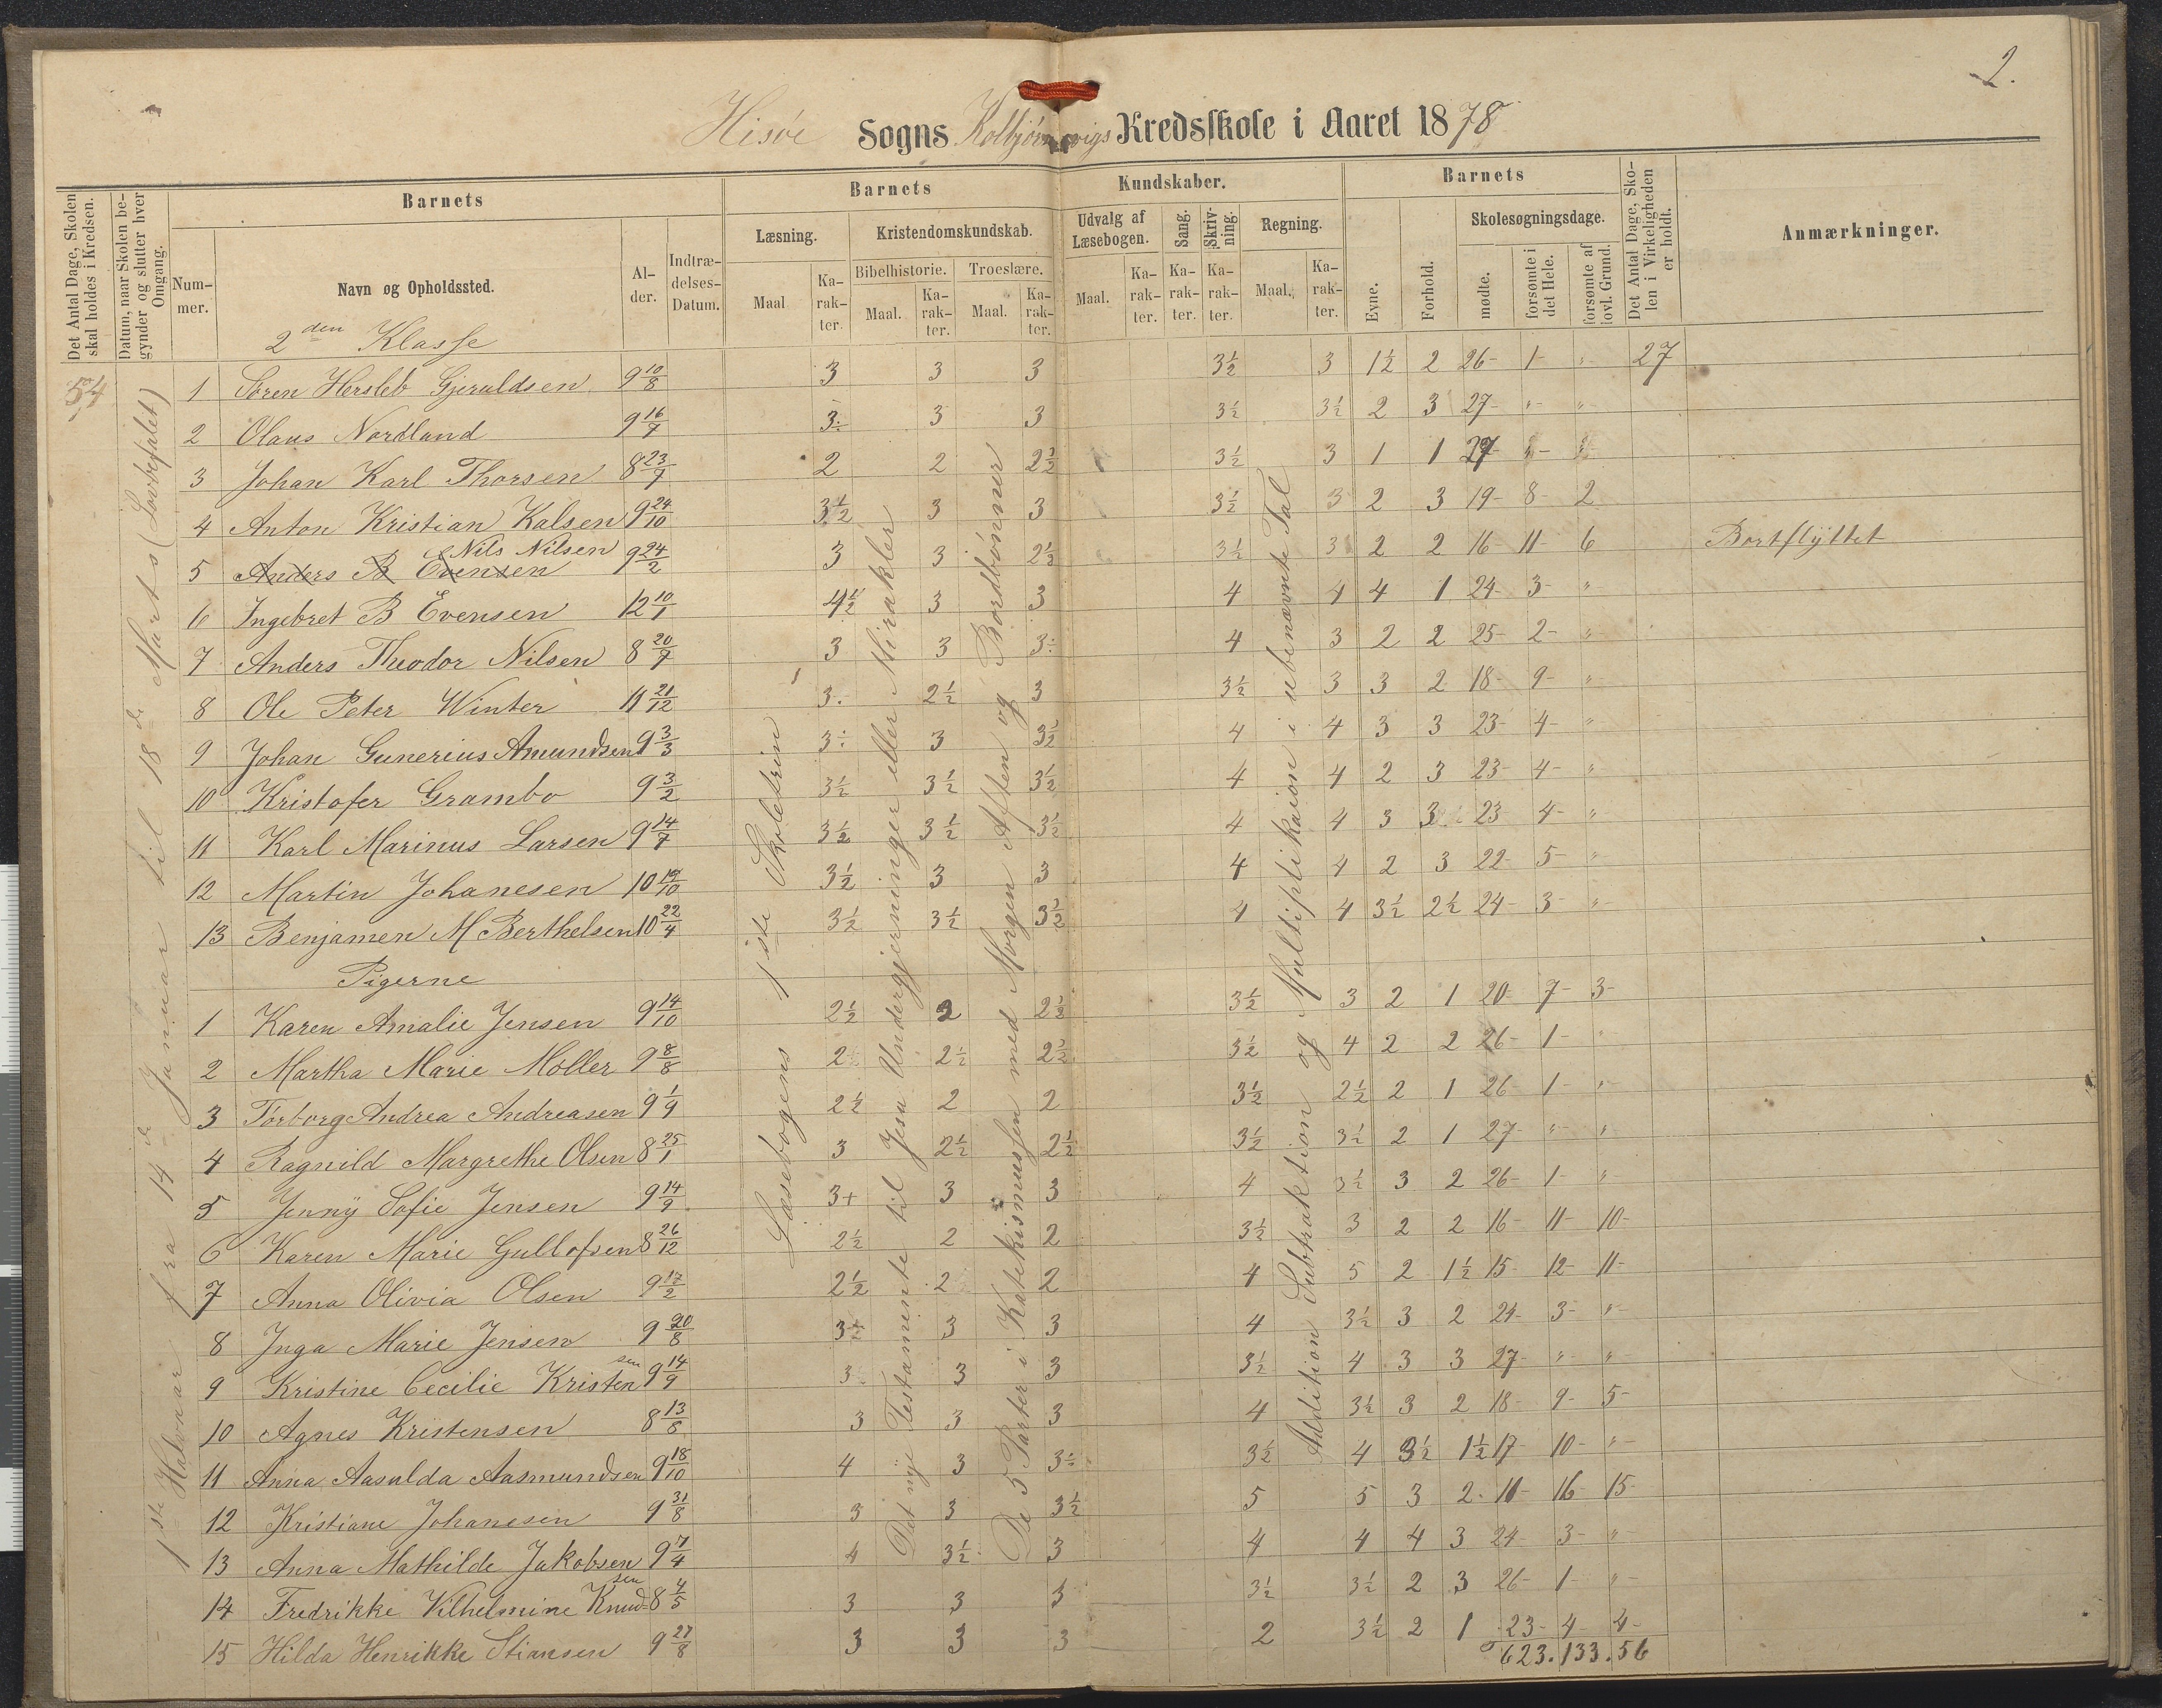 2.
Hisöe Sogns Kolbjörnsvigs Kredsskole i Aaret 1878
Det Antal Dage, Skolen skal holdes i Kredsen.
Datum, naar Skolen begynder og slutter hver Omgang.
Barnets
Nummer.
Navn og Opholdssted.
Alder.
Indtrædelses-Datum.
Barnets Kundskaber.
Læsning.
Maal
Karakter.
Kristendomskundskab.
Bibelhistorie.
Maal.
Karakter.
Troeslære.
Maal.
Karakter.
Udvalg af Læsebogen.
Maal.
Karakter.
Sang.
Karakter.
Skrivning.
Karakter.
Regning.
Maal.
Karakter.
Barnets
Evne.
Forhold.
Skolesøgningsdage.
mødte.
forsømte i det Hele.
forsømte af lovl. Grund.
Det Antal Dage, Skolen i Virkeligheden er holdt.
Anmærkninger.
54
1ste Halvaar fra 14de Januar til 18de Marts (Lovbefalet)
Læsebogens 1ste Skoletrin
Det nye Testamente til Jesu Undergjerninger eller Mirakler
De 5 Parter i Katekismussen med Morgen Aften og Bordbønner
Addition Subtraktion og Multiplikaion i ubenævnte Tal
2den Klasse
1 Søren Hersleb Gjeruldsen 9 10/8 3 3 3 3½ 3 1½ 2 26- 1- " 27
2 Olaus Nordland 9 16/7 3÷ 3 3 3½ 3½ 2 3 27- "- "
3 Johan Karl Thorsen 8 23/9 2 2 2½ 3½ 3 1 1 27- "- "
4 Anton Kristian Kalsen 9 24/10 3½ 3 3 3½ 3 2 3 19- 8- 2
5 Anders B Evensen Nils Nilsen 9 24/2 3 3 2½ 3½ 3 2 2 16- 11- 6 Bortflyttet
6 Ingebret B Evensen 12 10/1 4½ 3 3 4 4 4 1 24- 3- "
7 Anders Theodor Nilsen 8 20/7 3 3 3÷ 4 3 2 2 25- 2- "
8 Ole Peter Winter 11 21/12 3÷ 2½ 3 3½ 3 3 2 18- 9- "
9 Johan Gunerius Amundsen 9 3/3 3÷ 3 3½ 4 4 3 3 23- 4- "
10 Kristofer Grambo 9 3/2 3½ 3½ 3½ 4 4 2 3 23- 4- "
11 Karl Marinus Larsen 9 14/7 3½ 3½ 3½ 4 4 3 3 23 4- "
12 Martin Johanesen 10 19/10 3½ 3 3 4 4 2 3 22- 5- "
13 Benjamen M Berthelsen 10 22/4 3½ 3½ 3½ 4 4 3½ 2½ 24- 3- "
Pigerne
1 Karen Amalie Jensen 9 14/10 2½ 2 2½ 3½ 3 2 1 20- 7- 3-
2 Martha Marie Möller 9 8/8 2½ 2½ 2½ 3½ 4 2 2 26- 1- "
3 Törborg Andrea Andreasen 9 1/9 2½ 2 2 3½ 2½ 2 1 26- 1- "
4 Ragnild Margrethe Olsen 8 25/1 3 2½ 2½ 3½ 3½ 2 1 27- "- "
5 Jenny Sofie Jensen 9 14/9 3+ 3 3 4 3½ 3 2 26- 1- "
6 Karen Marie Gullofsen 8 26/12 2½ 2 2 3½ 3 2 2 16- 11- 10-
7 Anna Olivia Olsen 9 17/2 2½ 2 2 4 5 2 1½ 15- 12- 11-
8 Inga Marie Jensen 9 20/8 3÷ 3 3 4 3½ 3 2 24- 3- "
9 Kristine Cecilie Kristensen 9 14/9 3 3 3 3½ 4 3 3 27- " "
10 Agnes Kristensen 8 13/8 3 3 3 4 3½ 3 2 18- 9- 5-
11 Anna Aasulda Aasmundsen 9 18/10 4 3 3÷ 3½ 4 3½ 1½ 17- 10- "
12 Kristiane Johanesen 9 31/8 3 3 3½ 5 5 3 2 11- 16- 15-
13 Anna Mathilde Jakobsen 9 7/4 4 3½ 3 4 4 4 3 24- 3- "
14 Fredrikke Vilhelmine Knudsen 8 4/5 3 3 3 3½ 3½ 2 3 26- 1- "
15 Hilda Henrikke Stiansen 9 27/8 3 3 3 2 3½ 2 1 23- 4- 4-
623. 133. 56